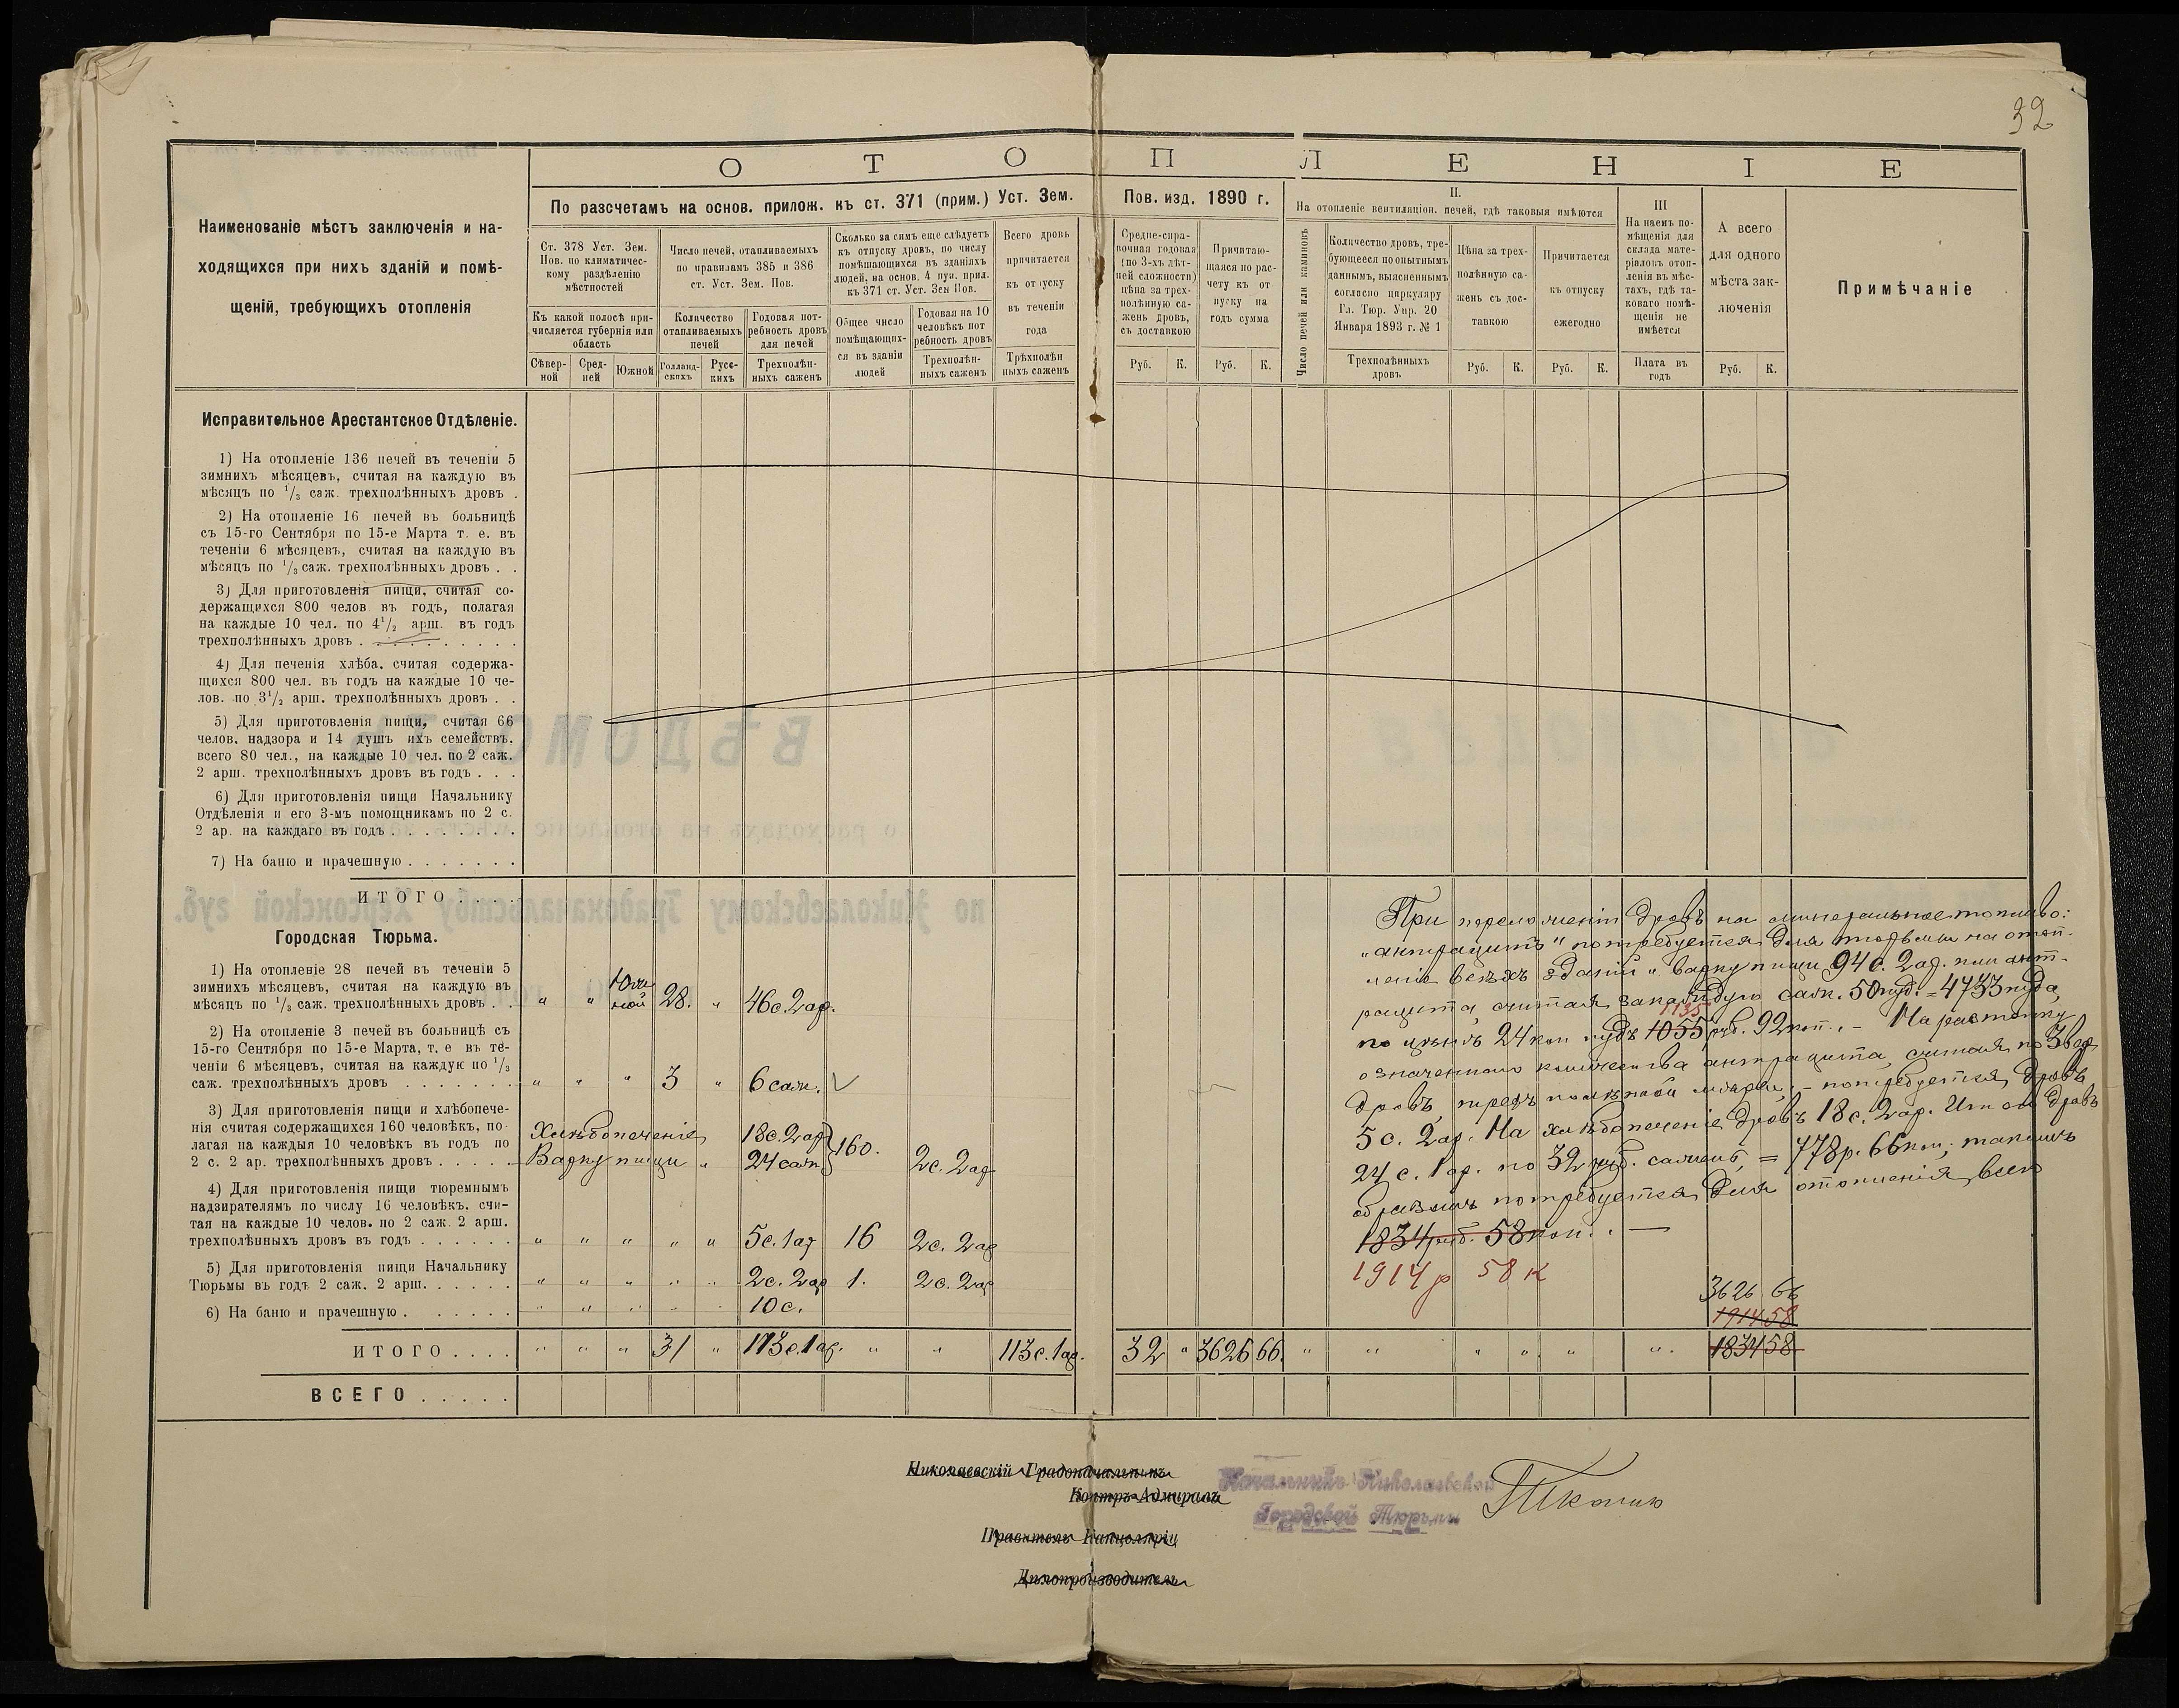 32
О Т О П Л Е Н І Е
Наименованіе мѣстъ заключенія и на-
ходящихся при нихъ зданій и помѣ-
щеній, требующихъ отопленія
По разсчетамъ на основ. прилож. къ ст. 371 (прим.) Уст. Зем. Пов. изд. 1890 г.
Ст. 378 Уст. Зем.
Пов. по климатичес-
кому раздѣленію
мѣстностей
Къ какой полосѣ при-
числяется губернія или
область
Сѣвер-
ной
Сред-
ней
Южной
Число печей, отапливаемыхъ
по правиламъ 385 и 386
ст. Уст. Зем. Пов.
Количество
отапливаемыхъ
печей
Голланд-
скихъ
Русс-
кихъ
Годовая пот-
ребность дровъ
для печей
Трехполѣн-
ныхъ саженъ
Сколько за симъ еще слѣдуетъ
къ отпуску дровъ, по числу
помѣщающихся въ зданіяхъ
людей, на основ. 4 пун. прил.
къ 371 ст. Уст. Зем Пов.
Общее число
помѣщающих-
ся въ зданіи
людей
Годовая на 10
человѣкъ пот
ребность дровъ
Трехполѣн-
ныхъ саженъ
Всего дровъ
причитается
къ отпуску
въ теченіи
года
Трехполѣн
ныхъ саженъ
Средне-спра-
вочная годовая
(по 3-хъ лѣт-
ней сложности)
цѣна за трех-
полѣнную са-
жень дровъ,
съ доставкою
Руб. К.
Причитаю-
щаяся по рас-
чету къ от
пуску на
годъ сумма
Руб. К.
II.
На отопленіе вентиляціон. печей, гдѣ таковыя имѣются
Число печей или каминовъ
Количество дровъ, тре-
бующееся по опытнымъ
даннымъ, выясненнымъ
согласно циркуляру
Гл. Тюр. Упр. 20
Января 1893 г. № 1
Трехполѣнныхъ
дровъ
Цѣна за трех-
полѣнную са-
жень съ дос-
тавкою
Руб. К.
Причитается
къ отпуску
ежегодно
Руб. К.
III
На наемъ по-
мѣщенія для
склада мате-
ріаловъ отоп-
ленія въ мѣс-
тахъ, гдѣ та-
коваго помѣ-
щенія не
имѣется
Плата въ
годъ
А всего
для одного
мѣста зак-
люченія
Руб. К.
Примѣчаніе
Исправительное Арестантское Отдѣленіе.
1) На отопленіе 136 печей въ теченіи 5
зимнихъ мѣсяцевъ, считая на каждую въ
мѣсяцъ по 1/3 саж. трехполѣнныхъ дровъ .
2) На отопленіе 16 печей въ больницѣ
съ 15-го Сентября по 15-е Марта т. е. въ
теченіи 6 мѣсяцевъ, считая на каждую въ
мѣсяцъ по 1/3 саж. трехполѣнныхъ дровъ . .
3) Для приготовленія пищи, считая со-
держащихся 800 челов въ годъ, полагая
на каждые 10 чел. по 4 1/2 арш. въ годъ
трехполѣнныхъ дровъ . . . . . . . . . .
4) Для печенія хлѣба, считая содержа-
щихся 800 чел. въ годъ на каждые 10 че-
лов. по 3 1/2 арш. трехполѣнныхъ дровъ . .
5) Для приготовленія пищи, считая 66
челов. надзора и 14 душъ ихъ семействъ,
всего 80 чел., на каждые 10 чел. по 2 саж.
2 арш. трехполѣнныхъ дровъ въ годъ . . .
6) Для приготовленія пищи Начальнику
Отдѣленія и его 3-мъ помощникамъ по 2 с.
2 ар. на каждаго въ годъ . . . . . . . . .
7) На баню и прачешную . . . . . . .
ИТОГО . . . .
Городская Тюрьма.
1) На отопленіе 28 печей въ теченіи 5
зимнихъ мѣсяцевъ, считая на каждую въ
мѣсяцъ по 1/3 саж. трехполѣнныхъ дровъ . . " " Южной 28. " 46 с. 2 ар.
2) На отопленіе 3 печей въ больницѣ съ
15-го Сентября по 15-е Марта, т. е въ те-
ченіи 6 мѣсяцевъ, считая на каждую по 1/3
саж. трехполѣнныхъ дровъ . . . . . . . " " " 3 " 6 саж.
3) Для приготовленія пищи и хлѣбопече-
нія считая содержащихся 160 человѣкъ, по-
лагая на каждыя 10 человѣкъ въ годъ по
2 с. 2 ар. трехполѣнныхъ дровъ . . . . .
Хлѣбопеченіе 18 с. 2 ар.
Варку пищи " 24 саж. 160. 2 с. 2 ар
4) Для приготовленія пищи тюремнымъ
надзирателямъ по числу 16 человѣкъ, счи-
тая на каждые 10 челов. по 2 саж. 2 арш.
трехполѣнныхъ дровъ въ годъ . . . . . . " " " " " 5 с. 1 ар 16 2 с. 2 ар
5) Для приготовленія пищи Начальнику
Тюрьмы въ годъ 2 саж. 2 арш. . . . . . " " " " " 2 с. 2 ар 1. 2 с. 2 ар
6) На баню и прачешную . . . . . . . " " " " " 10 с.
ИТОГО . . . . " " " 31 " 113 с. 1 ар. " " 113 с. 1 ар. 32 " 3626 66. " " " " " " 183458
ВСЕГО . . . . .
При переложеніи дровъ на минеральное топливо:
"антрацитъ" потребуется для тюрьмы на отоп-
леніе всѣхъ зданій и варку пищи 94 с. 2 ар. или ант-
рацита, считая за каждую саж. 50 пуд. = 4733 пуда,
1135
по цѣнѣ 24 коп. пудъ 1055 руб. 92 коп. - На растопку
означеннаго количества антрацита, считая по 3 вер.
дровъ трехъ полѣнной мѣры, - потребуется дровъ
5 с. 2 ар. На хлѣбопеченіе дровъ 18 с. 2 ар. Итого дровъ
24 с. 1 ар. по 32 руб. сажень, = 778 р. 66 коп.; такимъ
образомъ потребуется для отопленія всего
1834 руб. 58 коп. . —
1914 р 58 к
3626 66
191458
Николаевскій Градоначальникъ
Контръ-Адмиралъ
Правитель Канцеляріи
Дѣлопроизводитель
Начальникъ Николаевской
Городской Тюрьмы